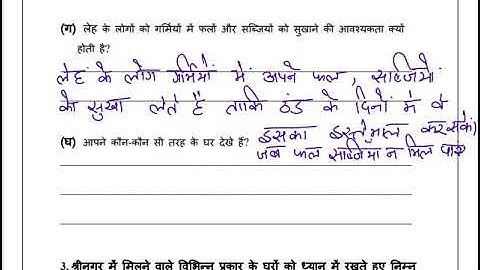 (ग) लेह के लोगों को गर्मियों में फलों और सब्जियों को सुखाने की आवश्यकता क्यों
होती है?
लेह के लोग गर्मियों में अपने फल, सब्जियों
को सुखा लेते है ताकि ठंड के दिनों में वे
इसका इस्तेमाल कर सकें।
(घ) आपने कौन-कौन सी तरह के घर देखे हैं?
जब फल सब्जियां न मिल पाए
3. श्रीनगर में मिलने वाले विभिन्न प्रकार के घरों को ध्यान में रखते हुए निम्न